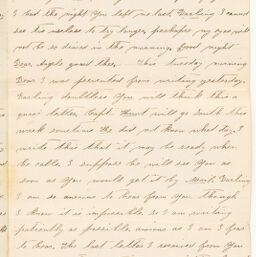 I had the night you left me last. Darling I cannot
see his useless to try longer, perhaps my eyes will
not be so desired in the morning, good night
Dear Angels guard thee. This Tuesday morning
Dear I was prevented from writing yesterday.
Darling doubtless you will think this a
queer letter. Capt. will go South this
week sometime He did not know what day. I
write this that it may be ready when
he calls. I suppose he will see you as
soon as you would get it by Mail. Darling
I am so anxious to hear from you Though
I know it is impossible, so I am waiting
patiently as possible, anxious as I am I fear
to hear. The last letter I received from you